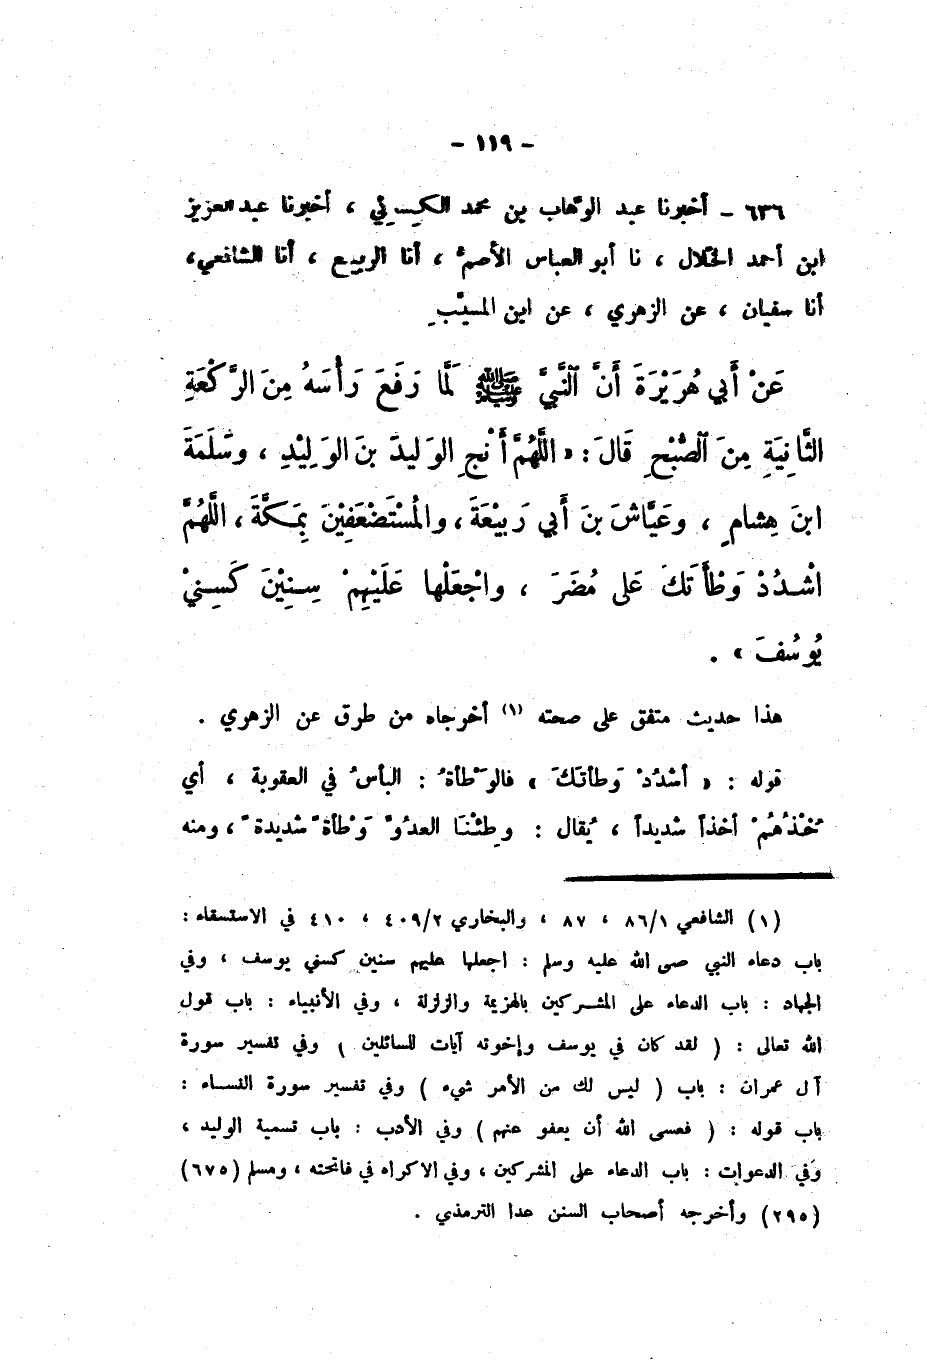 - ١١٩ -
٦٣٦ - أخبرنا عبد الوهّاب بن محمد الكسائي ، أخبرنا عبد العزيز
ابن أحمد الخلّال ، نا أبو العباس الأصمُّ ، أنا الربيع ، أنا الشافعي،
أنا سفيان ، عن الزهري ، عن ابن المسيّبِ
عَنْ أَبي هُرَيْرَةَ أَنَّ النَّبِيَّ ﷺ لَمَّا رَفَعَ رَأْسَهُ مِنَ الرَّكْعَةِ
الثَّانِيَةِ مِنَ الصُّبْحِ قَالَ : « اللَّهُمَّ أَنْجِ الوَليدَ بنَ الوَلِيْدِ ، وسَّلَمَةَ
ابنَ هِشامٍ ، وعَيَّاشَ بنَ أَبي رَبيْعَةَ ، والمُسْتَضْعَفِيْنَ بِمَكَّةَ ، اللَّهُمَّ
اشْدُدْ وَطْأَتَكَ عَلى مُضَرَ ، واجْعَلْها عَلَيْهِمْ سِنِيْنَ كَسِنِيْ
يُوسُفَ » .
هذا حديث متفق على صحته (١) أخرجاه من طرق عن الزهري .
قوله : « أشْدُدْ وَطأتَكَ » فالوَطْأةُ : البأسُ في العقوبة ، أي
خُذْهُمْ أخذاً شديداً ، يُقال : وطِئْنَا العدُوَّ وَطْأةً شديدةً ، ومنه
(١) الشافعي ٨٦/١ ، ٨٧ ، والبخاري ٤٠٩/٢ ، ٤١٠ في الاستسقاء :
باب دعاء النبي صلى الله عليه وسلم : اجعلها عليهم سنين كسني يوسف ، وفي
الجهاد : باب الدعاء على المشركين بالهزيمة والزلزلة ، وفي الأنبياء : باب قول
الله تعالى : ( لقد كان في يوسف وإخوته آيات للسائلين ) وفي تفسير سورة
آل عمران : باب ( ليس لك من الأمر شيء ) وفي تفسير سورة النساء :
باب قوله : ( فعسى الله أن يعفو عنهم ) وفي الأدب : باب تسمية الوليد ،
وفي الدعوات : باب الدعاء على المشركين ، وفي الاكراه في فاتحته ، ومسلم (٦٧٥)
(٢٩٥) وأخرجه أصحاب السنن عدا الترمذي .